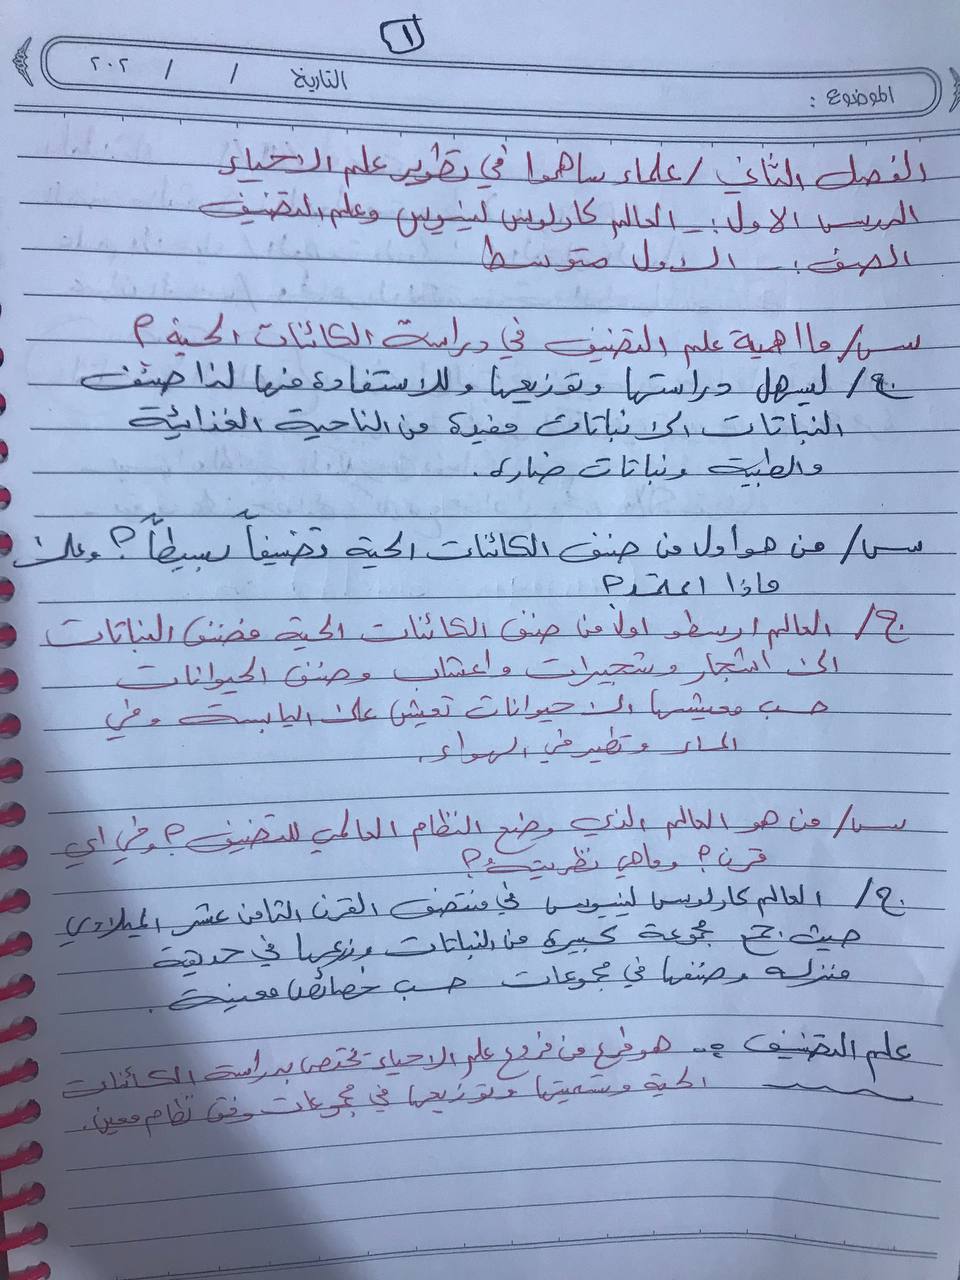 ١
الموضوع :
التاريخ / / ٢٠٢
الفصل الثاني / علماء ساهموا في تطوير علم الاحياء
الدرس الاول :- العالم كارلوس لينيوس وعلم التصنيف
الصف :- الاول متوسط
س/ ما اهمية علم التصنيف في دراسة الكائنات الحية ؟
ج/ ليسهل دراستها وتوزيعها وللاستفادة منها لذا صنف
النباتات الى نباتات مفيدة من الناحية الغذائية
والطبية ونباتات ضاره .
س/ من هو اول من صنف الكائنات الحية تصنيفاً بسيطاً ؟ وعلى
ماذا اعتمد ؟
ج/ العالم ارسطو اول من صنف الكائنات الحية فصنف النباتات
الى اشجار وشجيرات واعشاب وصنف الحيوانات
حسب معيشتها الى حيوانات تعيش على اليابسة وفي
الماء وتطير في الهواء .
س/ من هو العالم الذي وضع النظام العالمي للتصنيف ؟ وفي اي
قرن ؟ وماهي نظريته ؟
ج/ العالم كارلوس لينيوس في منتصف القرن الثامن عشر الميلادي
حيث جمع مجموعة كبيرة من النباتات وزرعها في حديقة
منزله وصنفها في مجموعات حسب خصائص معينة .
علم التصنيف :- هو فرع من فروع علم الاحياء تختص بدراسة الكائنات
الحية وتسميتها وتوزيعها في مجموعات وفق نظام معين .